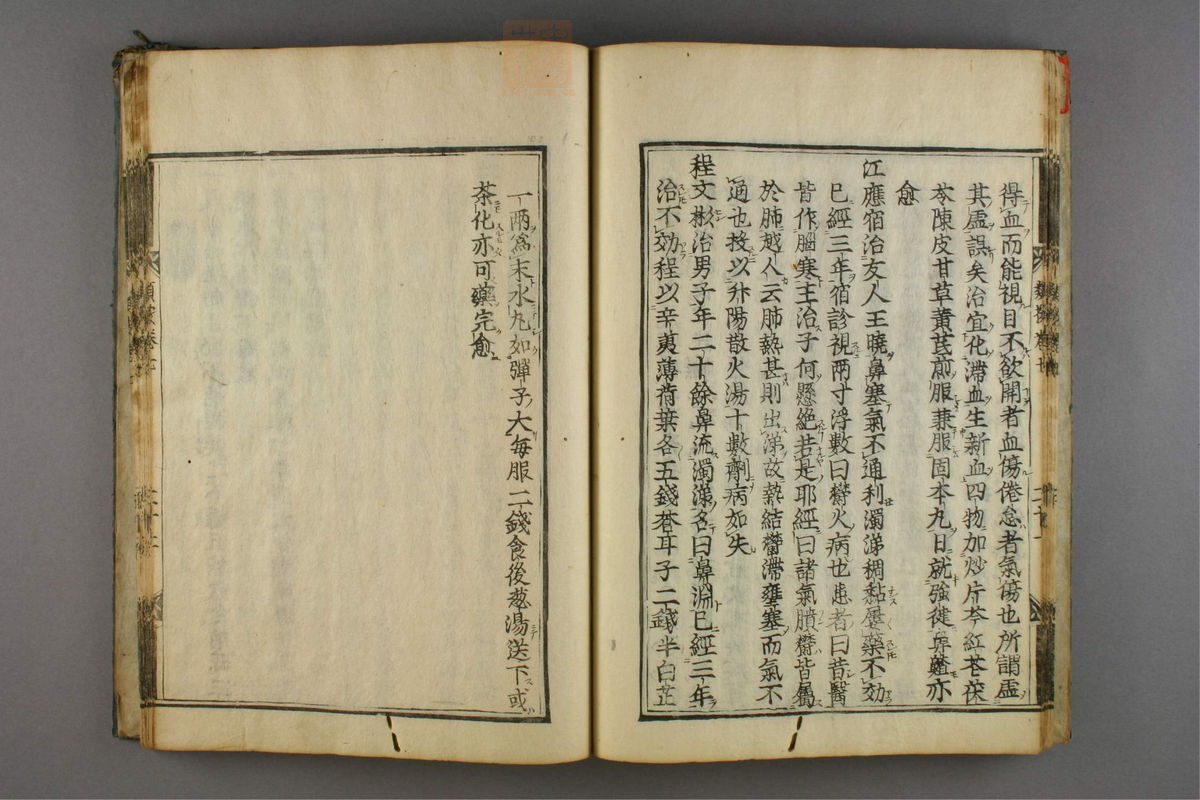 得血而能視目不欲開者血傷倦怠者氣傷也所謂虛
其虛誤矣治宜化滯血生新血四物加炒片芩紅花茯
苓陳皮甘草黃芪煎服兼服固本丸日就強健鼻衄亦
愈
江應宿治友人王曉鼻塞氣不通利濁涕稠黏屢藥不効
已經三年宿診視兩寸浮數曰欝火病也患者曰昔醫
皆作腦寒主治子何懸絕若是耶經曰諸氣膹欝皆屬
於肺越人云肺熱甚則出涕故熱結欝滯壅塞而氣不
通也投以升陽散火湯十數劑病如失
程文彬治男子年二十餘鼻流濁涕名曰鼻淵已經三年
治不効程以辛夷薄荷葉各五錢蒼耳子二錢半白芷
一兩爲末水丸如彈子大每服二錢食後葱湯送下或
茶化亦可藥完愈